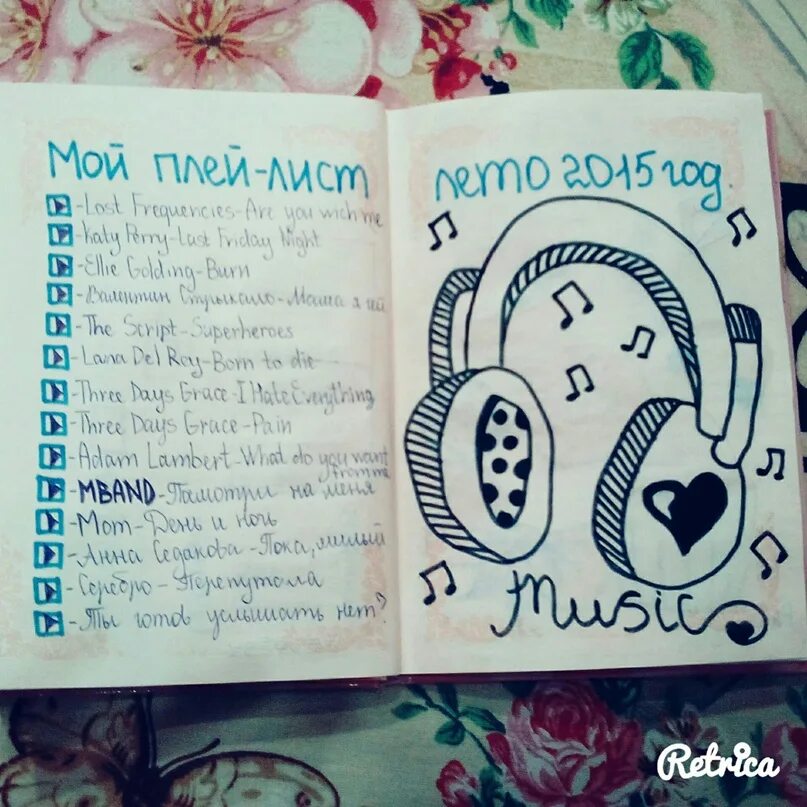 Мой плей-лист
-Lost Frequencies-Are you wich me
-Katy Perry-Last Friday Night
-Ellie Golding-Burn
-Валентин Стрыкало-Мама я гей
-The Script-Superheroes
-Lana Del Roy-Born to die
-Three Days Grace-I Hate Everything
-Three Days Grace-Pain
-Adam Lambert-What do you want
from me
-MBAND-Памотри на меня
-Мот-День и ночь
-Анна Седакова-Пока, милый
-Серебро-Перепутала
-Ты готов услышать нет?
лето 2015 год.
Music
Retrica